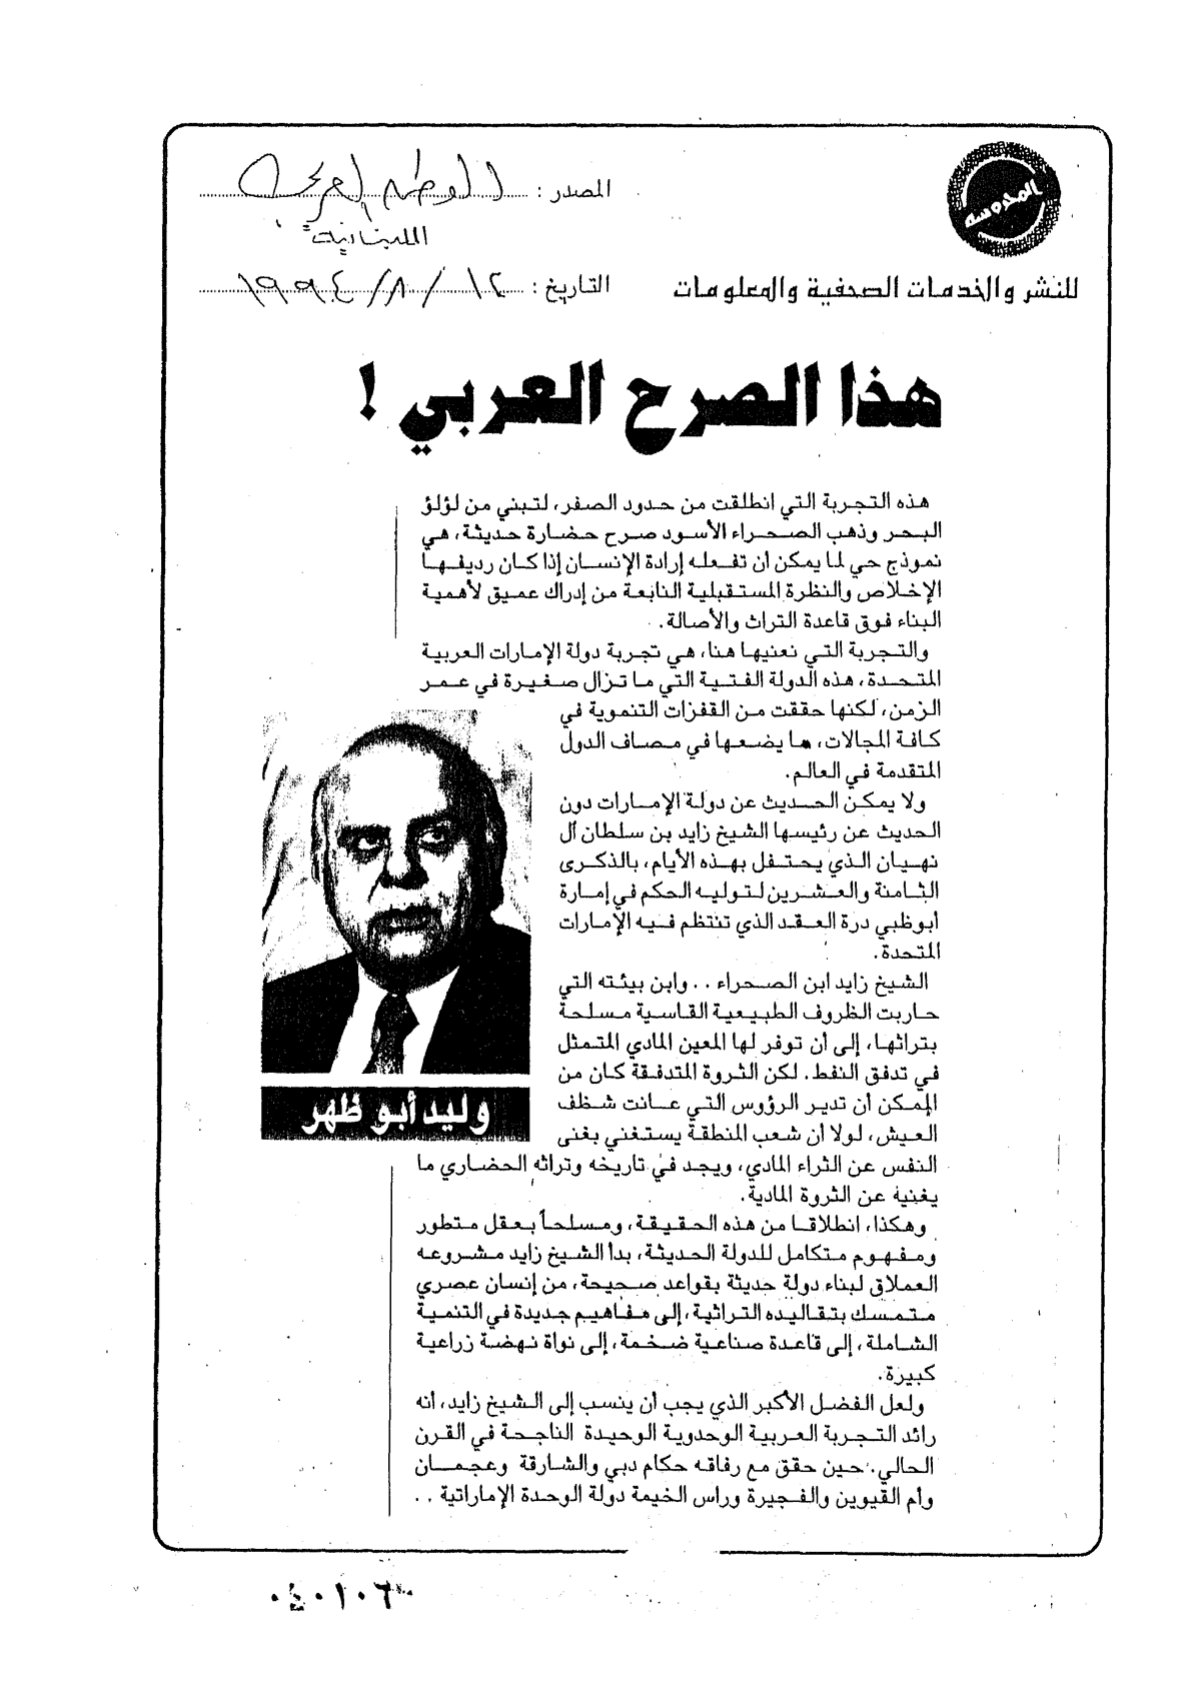 المدوسه
للنشر والخدمات الصحفية والمعلومات
المصدر : الوطن العربي
اللبنانية
التاريخ : ١٢ / ٨ / ١٩٩٤
هذا الصرح العربي !
هذه التجربة التي انطلقت من حدود الصفر، لتبني من لؤلؤ
البحر وذهب الصحراء الأسود صرح حضارة حديثة، هي
نموذج حي لما يمكن أن تفعله إرادة الإنسان إذا كان رديفها
الإخلاص والنظرة المستقبلية النابعة من إدراك عميق لأهمية
البناء فوق قاعدة التراث والأصالة.
والتجربة التي نعنيها هنا، هي تجربة دولة الإمارات العربية
المتحدة، هذه الدولة الفتية التي ما تزال صغيرة في عمر
الزمن، لكنها حققت من القفزات التنموية في
كافة المجالات، ما يضعها في مصاف الدول
المتقدمة في العالم.
ولا يمكن الحديث عن دولة الإمارات دون
الحديث عن رئيسها الشيخ زايد بن سلطان آل
نهيان الذي يحتفل بهذه الأيام، بالذكرى
الثامنة والعشرين لتوليه الحكم في إمارة
أبوظبي درة العقد الذي تنتظم فيه الإمارات
المتحدة.
الشيخ زايد ابن الصحراء .. وابن بيئته التي
حاربت الظروف الطبيعية القاسية مسلحة
بتراثها، إلى أن توفر لها المعين المادي المتمثل
في تدفق النفط. لكن الثروة المتدفقة كان من
الممكن أن تدير الرؤوس التي عانت شظف
العيش، لولا أن شعب المنطقة يستغني بغنى
النفس عن الثراء المادي، ويجد في تاريخه وتراثه الحضاري ما
يغنية عن الثروة المادية.
وهكذا، انطلاقا من هذه الحقيقة، ومسلحاً بعقل متطور
ومفهوم متكامل للدولة الحديثة، بدأ الشيخ زايد مشروعه
العملاق لبناء دولة حديثة بقواعد صحيحة، من إنسان عصري
متمسك بتقاليده التراثية، إلى مفاهيم جديدة في التنمية
الشاملة، إلى قاعدة صناعية ضخمة، إلى نواة نهضة زراعية
كبيرة.
ولعل الفضل الأكبر الذي يجب أن ينسب إلى الشيخ زايد، أنه
رائد التجربة العربية الوحدوية الوحيدة الناجحة في القرن
الحالي. حين حقق مع رفاقه حكام دبي والشارقة وعجمان
وأم القيوين والفجيرة ورأس الخيمة دولة الوحدة الإماراتية ..
وليد أبو ظهر